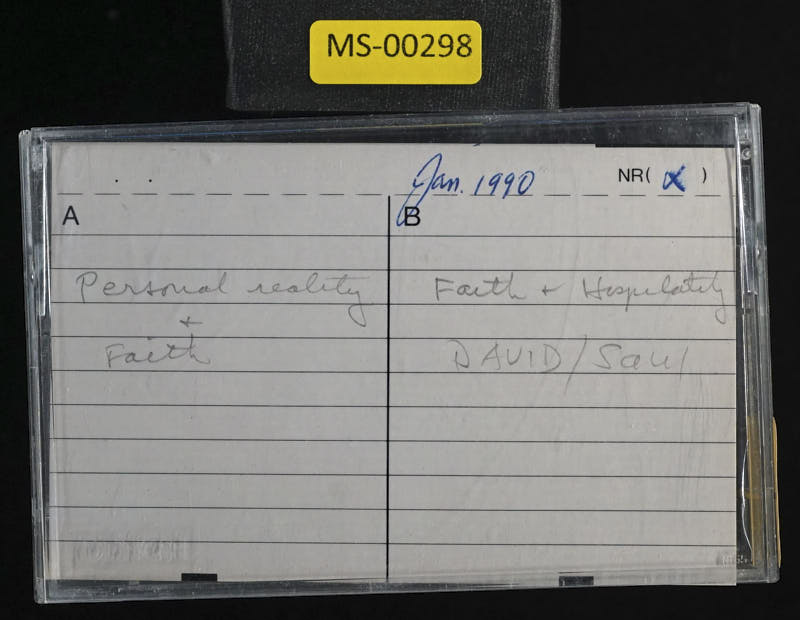 MS-00298
Jan. 1990
NR( x )
A
B
Personal reality
+
Faith
Faith + Hospitality
DAVID/Saul